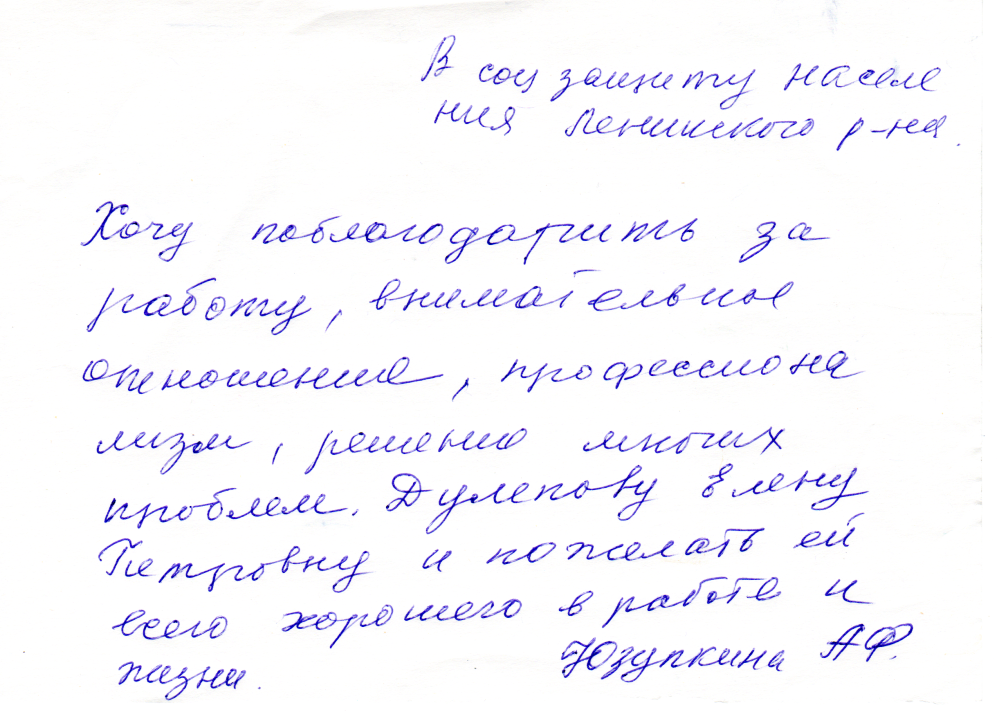 В соц защиту населе
ния Ленинского р-на.
Хочу поблагодарить за
работу, внимательное
отношение, профессиона
лизм, решение многих
проблем. Дулепову Елену
Петровну и пожелать ей
всего хорошего в работе и
жизни. Юзупкина АФ.